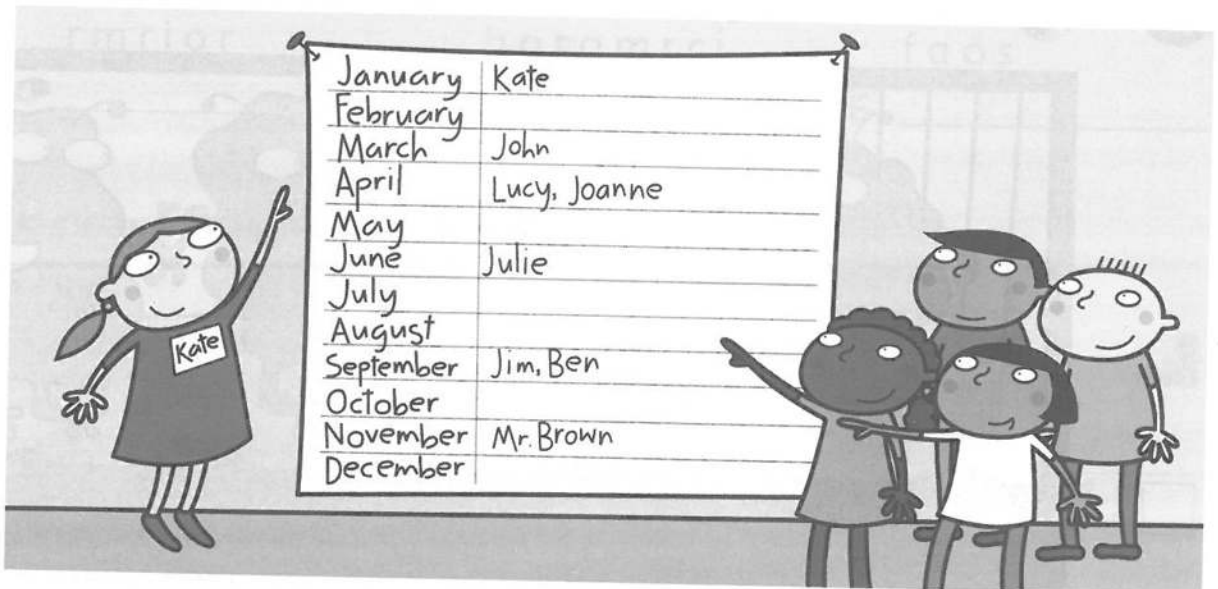 January Kate
February
March John
April Lucy, Joanne
May
June Julie
July
August
September Jim, Ben
October
November Mr. Brown
December
Kate